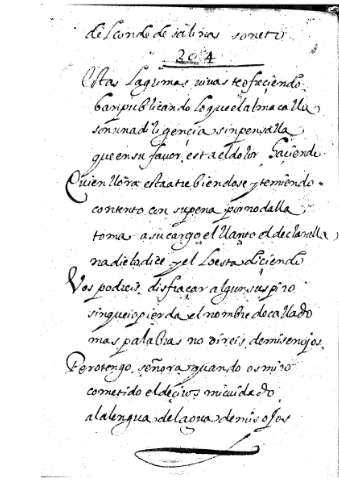 del conde de salinas soneto
204
Estas lagrimas vivas te ofreciendo
ban publicando lo que el alma calla
son una diligencia sin pensalla
que en su favor, esta el dolor haçiendo
Quien llora esta atrebiendose y temiendo
contento con su pena por no dalla
toma a su cargo el llanto el declaralla
nadie la dice y el lo esta diciendo
Vos podreis disfraçar algun suspiro
sin que io pierda el nombre de callado
mas palabras no direis de mis enojos
Pero tengo, señora quando os miro
cometido el deçiros mi cuidado
a la lengua del agua de mis ojos